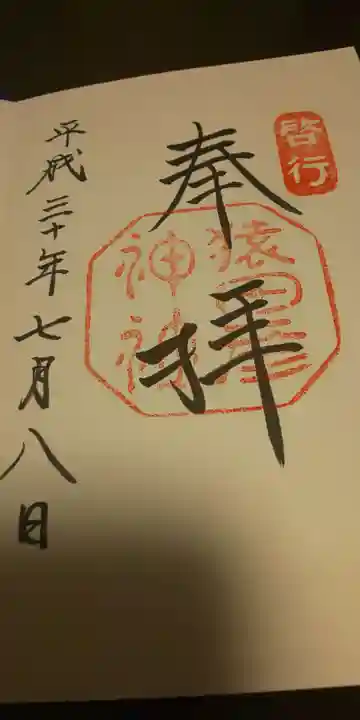 啓行
奉拝
猿田彦
神神
平成三十年七月八日